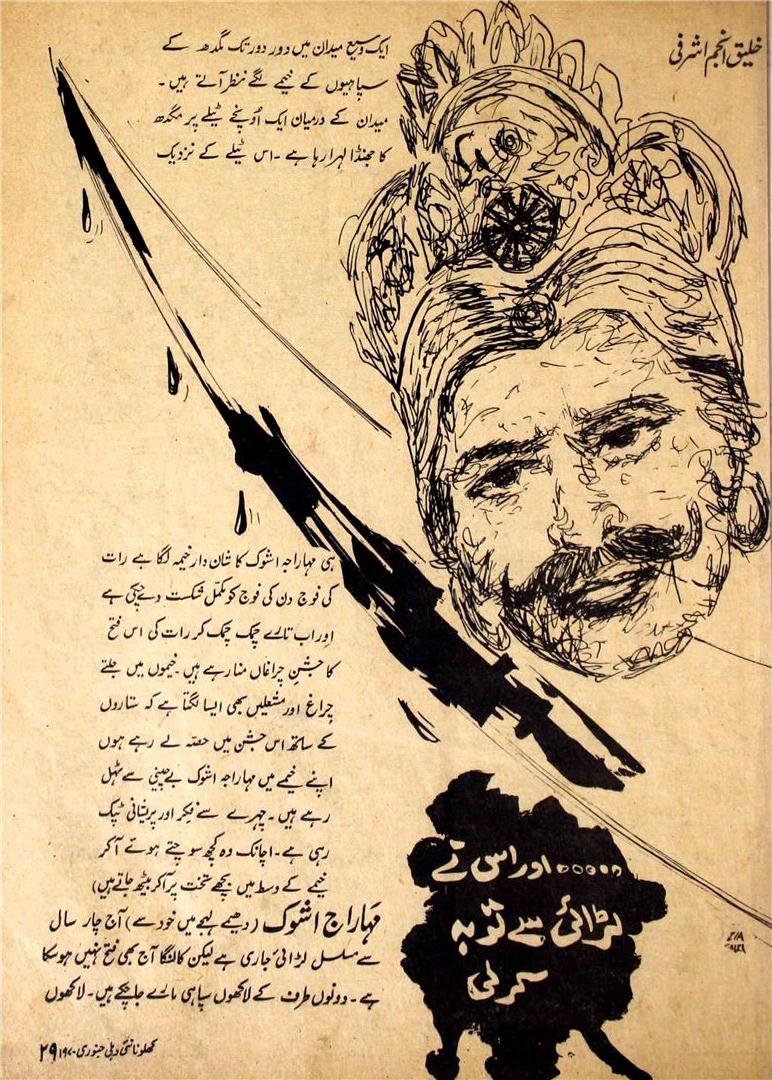 خلیق انجم اشرفی
ایک وسیع میدان میں دور دور تک مگدھ کے
سپاہیوں کے خیمے لگے نظر آتے ہیں۔
میدان کے درمیان ایک اونچے ٹیلے پر مگدھ
کا جھنڈا لہرا رہا ہے۔ اس ٹیلے کے نزدیک
ہی مہاراجہ اشوک کا شان دار خیمہ لگا ہے رات
کی فوج دن کی فوج کو مکمل شکست دے چکی ہے
اور اب تارے چمک چمک کر رات کی اس فتح
کا جشنِ چراغاں منا رہے ہیں۔ خیموں میں جلتے
چراغ اور مشعلیں بھی ایسا لگتا ہے کہ ستاروں
کے ساتھ اس جشن میں حصہ لے رہے ہوں
اپنے خیمے میں مہاراجہ اشوک بے چینی سے ٹہل
رہے ہیں۔ چہرے سے فکر اور پریشانی ٹپک
رہی ہے۔ اچانک وہ کچھ سوچتے ہوئے آکر
خیمے کے وسط میں بچھے تخت پر آکر بیٹھ جاتے ہیں)
مہاراج اشوک (دھیمے لہجے میں خود سے) آج چار سال
سے مسلسل لڑائی جاری ہے لیکن کالنگا آج بھی فتح نہیں ہوسکا
ہے۔ دونوں طرف کے لاکھوں سپاہی مارے جاچکے ہیں۔ لاکھوں
۰۰۰۰۰ اور اس نے
لڑائی سے توبہ
کرلی
کھلونا نئی دہلی جنوری ۱۹۷۰ ۲۹